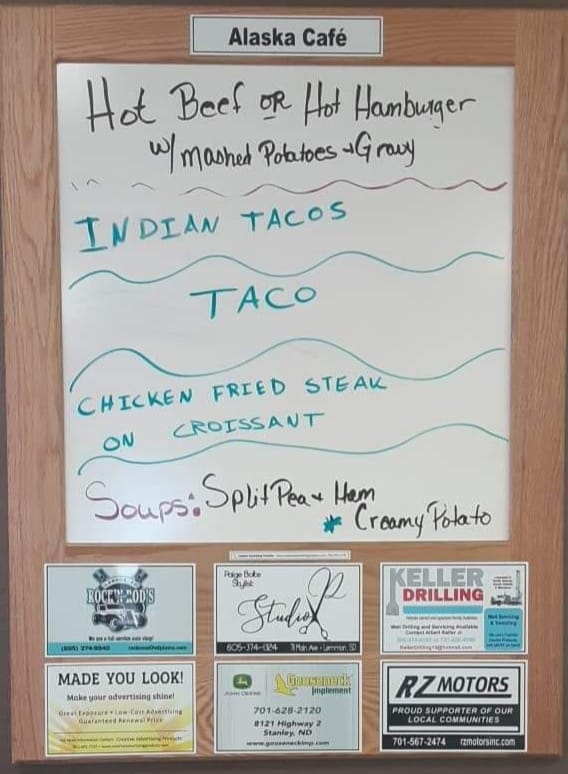 Alaska Café
Hot Beef OR Hot Hamburger
w/ mashed Potatoes + Gravy
INDIAN TACOS
TACO
CHICKEN FRIED STEAK
ON CROISSANT
Soups: Split Pea + Ham
* Creamy Potato
ROCK'N ROD'S
We are a full service auto shop!
(605) 274-8940
Paige Bolte
Stylist
Studio
605-374-1324
Main Ave - Lemmon, SD
KELLER
DRILLING
Well Drilling and Servicing Available
Contact Albert Keller Jr.
KellerDrilling19@hotmail.com
Well Servicing
MADE YOU LOOK!
Make your advertising shine!
Great Exposure • Low-Cost Advertising
Guaranteed Renewal Price
JOHN DEERE
Gooseneck
Implement
701-628-2120
8121 Highway 2
Stanley, ND
www.gooseneckimp.com
RZ MOTORS
PROUD SUPPORTER OF OUR
LOCAL COMMUNITIES
701-567-2474 rzmotorsinc.com